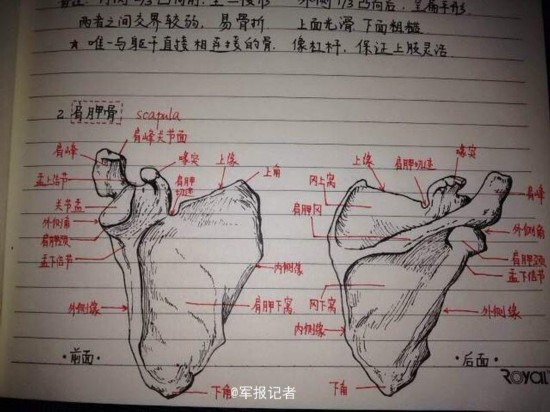 外侧1/3凸向后，呈扁平形
两者之间交界较的，易骨折 上面光滑 下面粗糙
★ 唯一与躯干直接相连接的骨．像杠杆，保证上肢灵活
2. 肩胛骨 scapula
肩峰关节面
肩峰
喙突
上缘
上角
肩胛切迹
盂上结节
关节盂
外侧角
肩胛颈
盂下结节
外侧缘
内侧缘
肩胛下窝
下角
·前面·
上缘
肩胛切迹
喙突
肩峰
冈上窝
肩胛冈
外侧角
肩胛颈
盂下结节
冈下窝
内侧缘
外侧缘
下角
·后面·
@军报记者
ROYAL